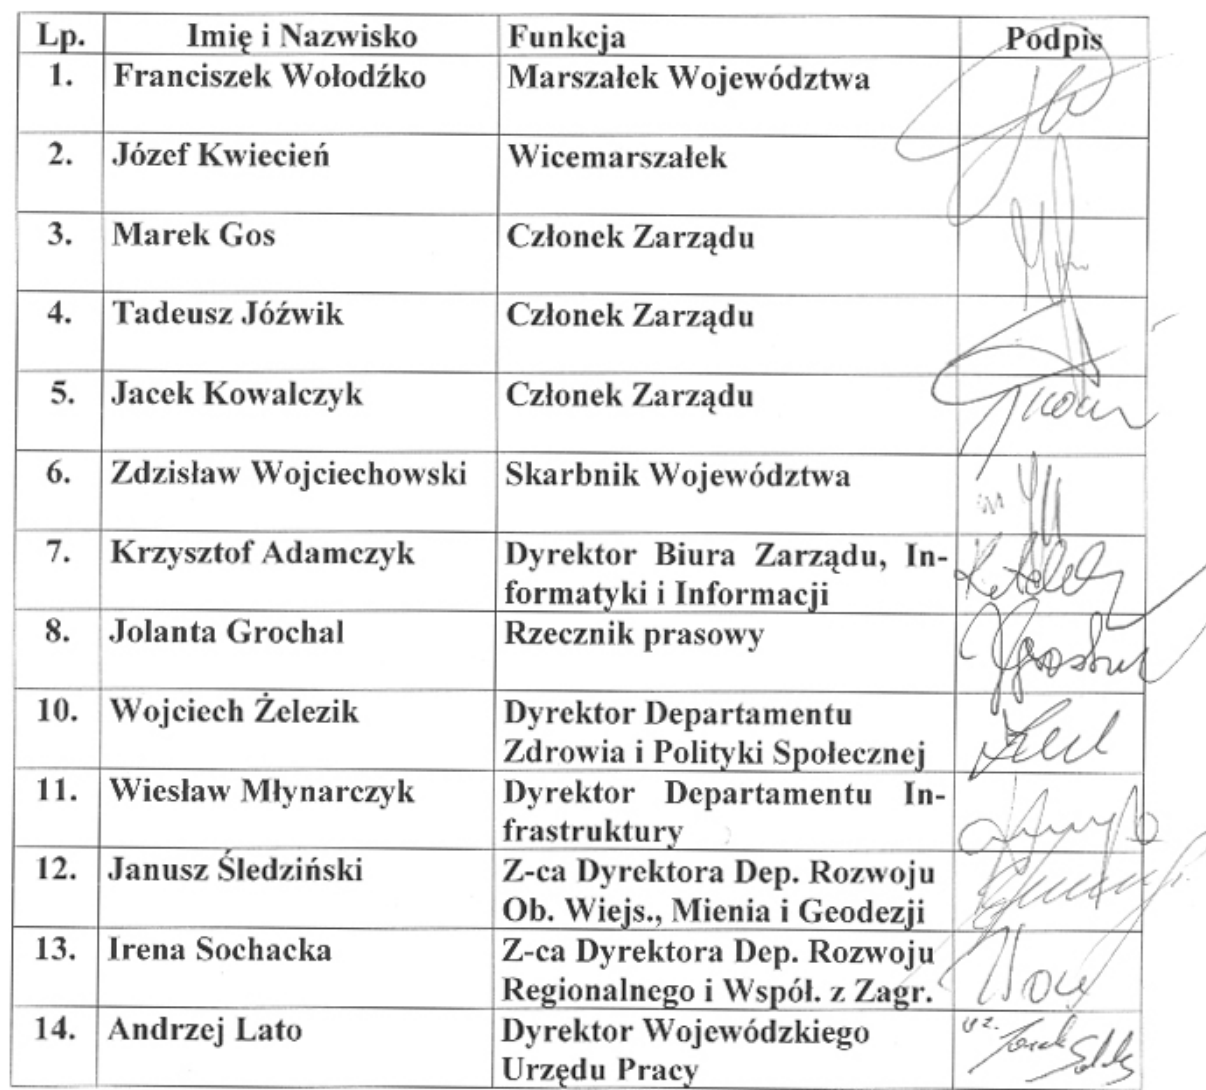 Lp. Imię i Nazwisko Funkcja Podpis
1. Franciszek Wołodźko Marszałek Województwa
2. Józef Kwiecień Wicemarszałek
3. Marek Gos Członek Zarządu
4. Tadeusz Jóźwik Członek Zarządu
5. Jacek Kowalczyk Członek Zarządu
6. Zdzisław Wojciechowski Skarbnik Województwa
7. Krzysztof Adamczyk Dyrektor Biura Zarządu, In-
formatyki i Informacji
8. Jolanta Grochal Rzecznik prasowy
10. Wojciech Żelezik Dyrektor Departamentu
Zdrowia i Polityki Społecznej
11. Wiesław Młynarczyk Dyrektor Departamentu In-
frastruktury
12. Janusz Śledziński Z-ca Dyrektora Dep. Rozwoju
Ob. Wiejs., Mienia i Geodezji
13. Irena Sochacka Z-ca Dyrektora Dep. Rozwoju
Regionalnego i Współ. z Zagr.
14. Andrzej Lato Dyrektor Wojewódzkiego
Urzędu Pracy